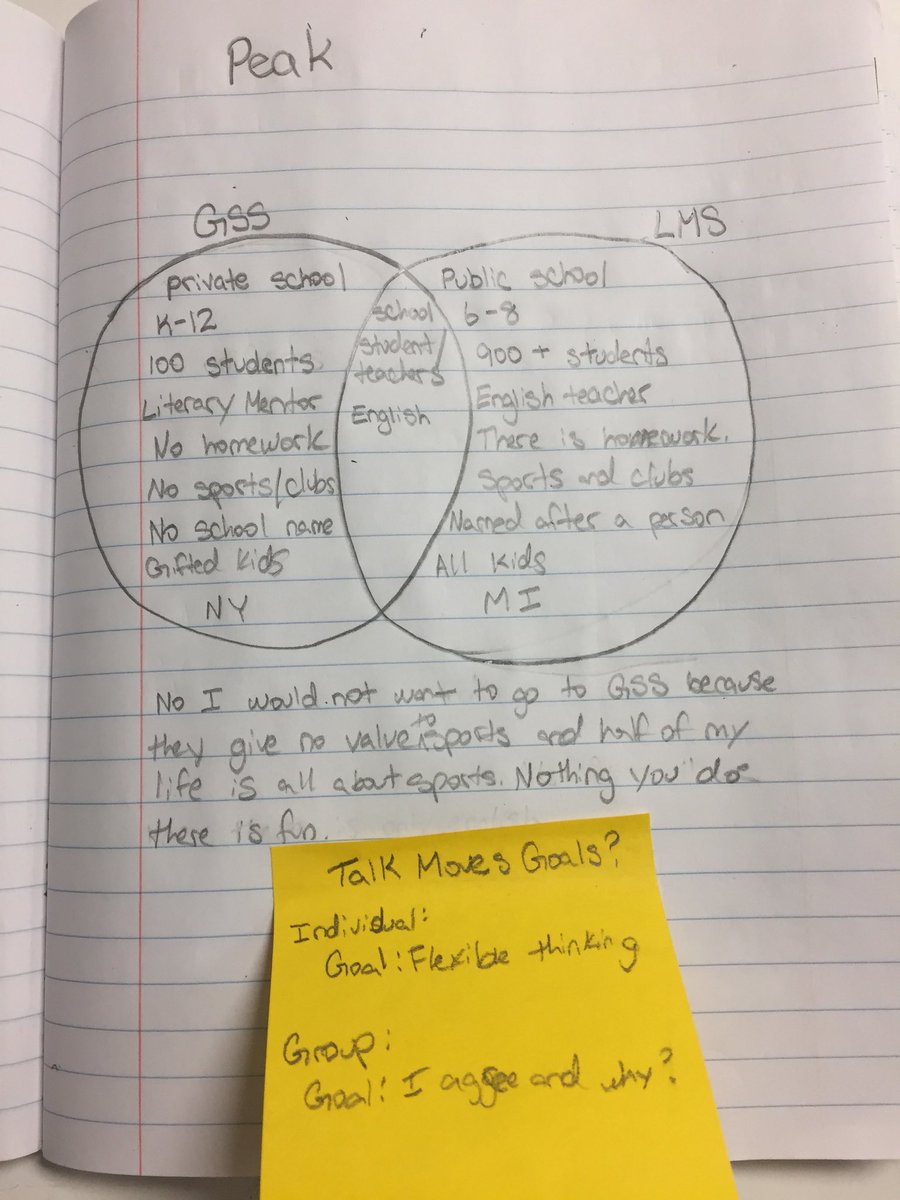 Peak
GSS
LMS
private school
K-12
100 students
Literary Mentor
No homework
No sports/clubs
No school name
Gifted kids
NY
school
student/
teachers
English
Public school
6-8
900 + students
English teacher
There is homework.
Sports and clubs
Named after a person
All kids
MI
No I would not want to go to GSS because
they give no value to sports and half of my
life is all about sports. Nothing you do
there is fun.
Talk Moves Goals?
Individual:
Goal: Flexible thinking
Group:
Goal: I agree and why?